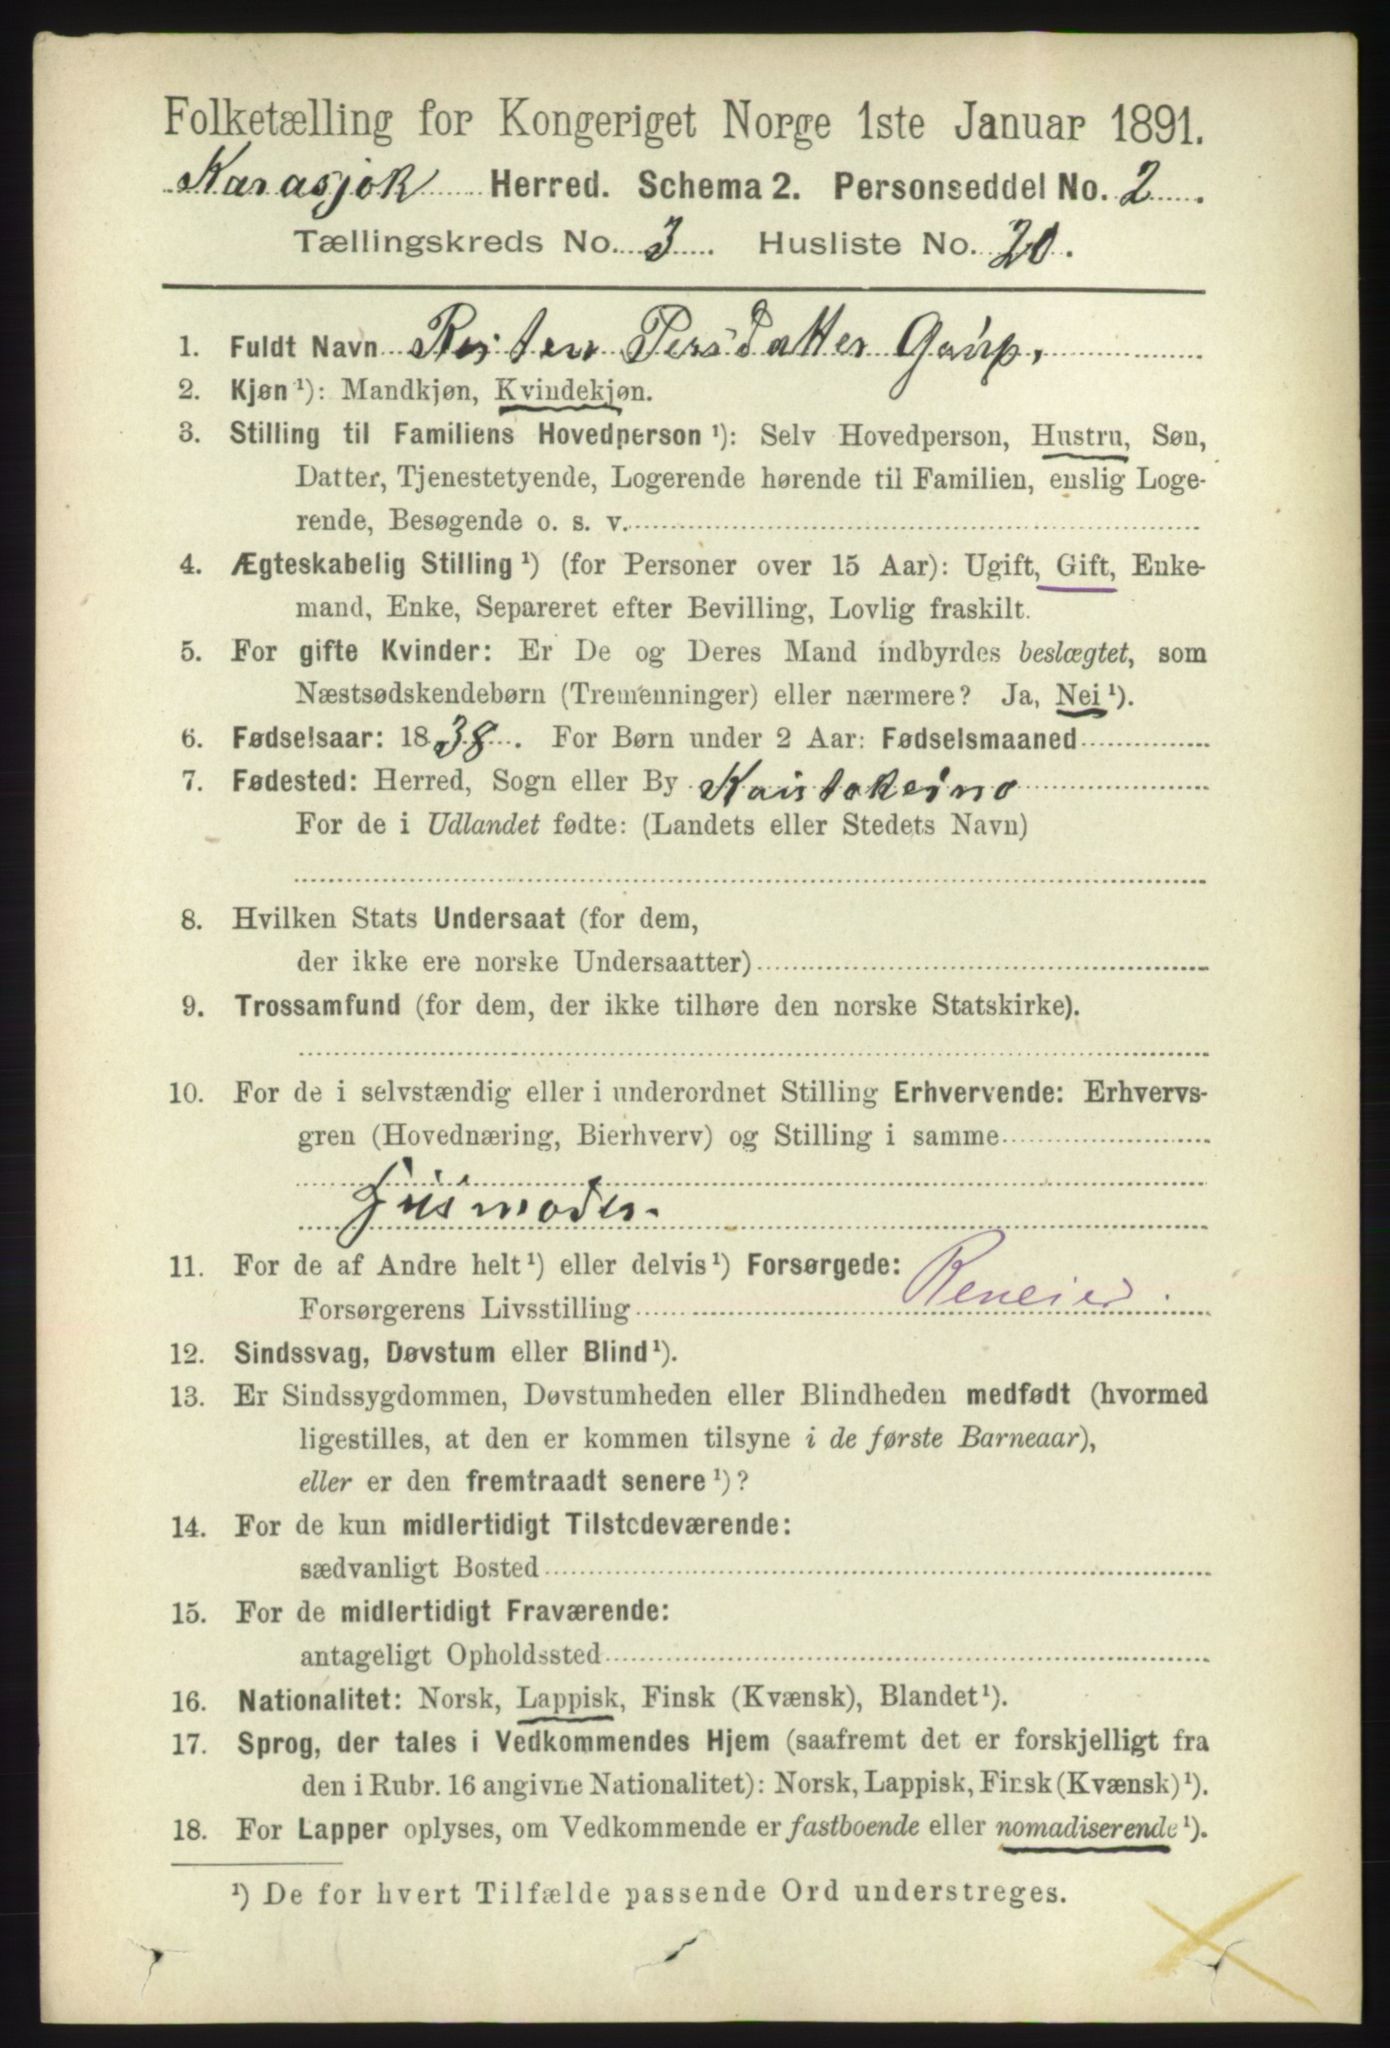 Folketælling for Kongeriget Norge 1ste Januar 1891.
Karasjok Herred. Schema 2. Personseddel No. 2.
Tællingskreds No. 3. Husliste No. 20.
1. Fuldt Navn Risten Persdatter Gaup.
2. Kjøn ¹): Mandkjøn, Kvindekjøn.
3. Stilling til Familiens Hovedperson ¹): Selv Hovedperson, Hustru, Søn,
Datter, Tjenestetyende, Logerende hørende til Familien, enslig Loge-
rende, Besøgende o. s. v.
4. Ægteskabelig Stilling ¹) (for Personer over 15 Aar): Ugift, Gift, Enke-
mand, Enke, Separeret efter Bevilling, Lovlig fraskilt.
5. For gifte Kvinder: Er De og Deres Mand indbyrdes beslægtet, som
Næstsødskendebørn (Tremenninger) eller nærmere? Ja, Nei ¹).
6. Fødselsaar: 1838. For Børn under 2 Aar: Fødselsmaaned
7. Fødested: Herred, Sogn eller By Kautokeino
For de i Udlandet fødte: (Landets eller Stedets Navn)
8. Hvilken Stats Undersaat (for dem,
der ikke ere norske Undersaatter)
9. Trossamfund (for dem, der ikke tilhøre den norske Statskirke).
10. For de i selvstændig eller i underordnet Stilling Erhvervende: Erhvervs-
gren (Hovednæring, Bierhverv) og Stilling i samme
Husmoder.
11. For de af Andre helt ¹) eller delvis ¹) Forsørgede:
Forsørgerens Livsstilling Reneier.
12. Sindssvag, Døvstum eller Blind ¹).
13. Er Sindssygdommen, Døvstumheden eller Blindheden medfødt (hvormed
ligestilles, at den er kommen tilsyne i de første Barneaar),
eller er den fremtraadt senere ¹)?
14. For de kun midlertidigt Tilstedeværende:
sædvanligt Bosted
15. For de midlertidigt Fraværende:
antageligt Opholdssted
16. Nationalitet: Norsk, Lappisk, Finsk (Kvænsk), Blandet ¹).
17. Sprog, der tales i Vedkommendes Hjem (saafremt det er forskjelligt fra
den i Rubr. 16 angivne Nationalitet): Norsk, Lappisk, Finsk (Kvænsk) ¹).
18. For Lapper oplyses, om Vedkommende er fastboende eller nomadiserende ¹).
¹) De for hvert Tilfælde passende Ord understreges.